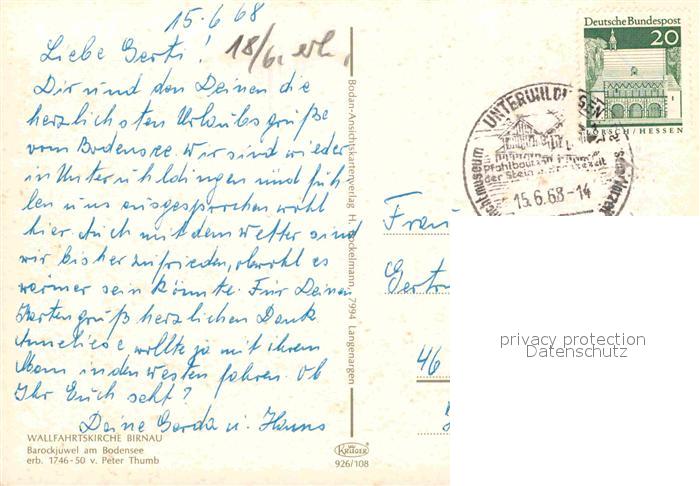 15.6.68
Liebe Gerti!
18/6. erh.
Dir und den Deinen die
herzlichsten Urlaubsgrüße
vom Bodensee. Wir sind wieder
in Unteruhldingen und füh-
len uns ausgesprochen wohl
hier. Auch mit dem Wetter sind
wir bisher zufrieden, obwohl es
wärmer sein könnte. Für Deinen
Kartengruß herzlichen Dank.
Anneliese wollte ja mit ihrem
Mann in den Westen fahren. Ob
Ihr Euch seht?
Deine Gerda u. Hanns
WALLFAHRTSKIRCHE BIRNAU
Barockjuwel am Bodensee
erb. 1746-50 v. Peter Thumb
Bodan-Ansichtskartenverlag H. 7994 Langenargen
KRÜGER
926/108
Deutsche Bundespost
20
LORSCH/HESSEN
Pfahlbauten
der Stein
15.6.68-14
Frau
Gertr
46
privacy protection
Datenschutz